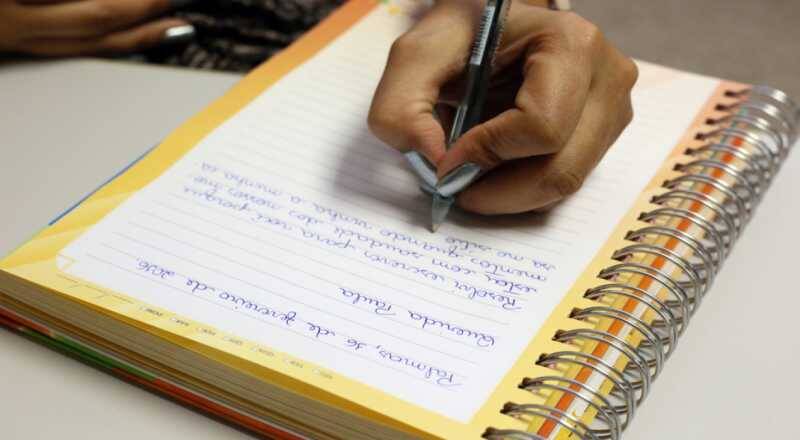 Palmas, 16 de fevereiro de 2016.
Querida Paula
Resolvi escrever para você porque
estou com saudade dos nossos mo
mentos quando vinha a minha ca
sa no sítio